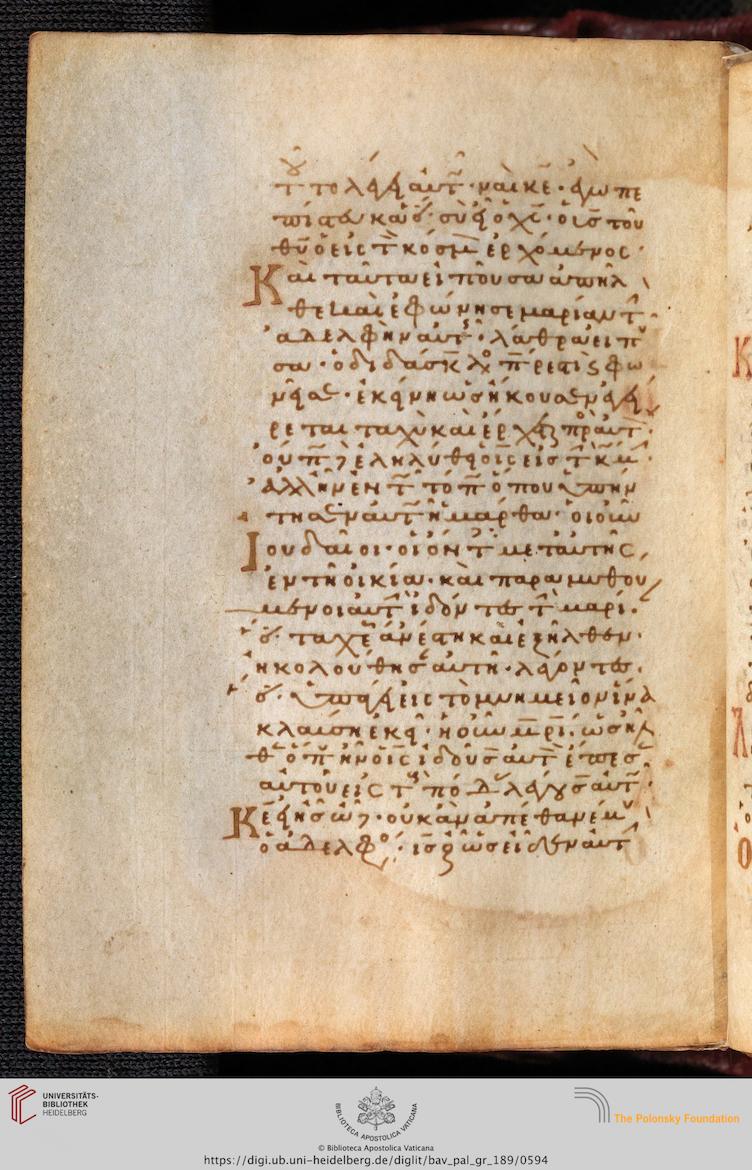 τ το λέγει αὐτ̅ · ναὶ κε̅ · ἐγὼ πε
πίστευκα ὅτι · σὺ εἶ ὁ χς̅ · ὁ υς̅ τοῦ
θυ̅ ὁ εἰς τ̅ κόσμ̅ ἐρχόμενος ·
Καὶ ταῦτα εἰποῦσα ἀπῆλ
θε καὶ ἐφώνησε μαρίαν τ̅
ἀδελφὴν αὐτ̅ · λάθρα εἰπ
σα · ὁ διδάσκ̅λ π̅ρεστι ϗ φω
νεῖ σε · ἐκείνη ὡς ἤκουσεν ἐγεί
ρεται ταχὺ καὶ ἔρχεται πρ αὐτ ·
οὔπ̅ δὲ ἐληλύθει ὁ ις̅ εἰς τ̅ κώμ ·
ἀλλ' ἦν ἐν τ̅ τόπ̅ ὅπου ὑπήν
τησεν αὐτ̅ ἡ μάρθα · οἱ οὖν
Ἰουδαῖοι · οἱ ὄντ̅ μετ αὐτῆς
ἐν τῇ οἰκία · καὶ παραμυθού
μενοι αὐτ̅ ἰδόντες τ̅ μαρι ·
ὅτι · ταχέ ἀνέστη καὶ ἐξῆλθεν ·
ἠκολούθησ̅ αὐτῆ · λέγοντες ·
ὅτι · ὑπάγει εἰς τὸ μνημεῖον ἵνα
κλαύση ἐκεῖ · ἡ οὖν μ̅ρι̅ · ὡς ἦλ
θ ὅπ̅ ἦν ὁ ις̅ ἰδοῦσ̅ αὐτ̅ ἔπεσ
αὐτοῦ εἰς τ̅ πόδ λέγουσ̅ αὐτ̅ ·
Κε̅ εἰ ἦς ὧδε · οὐκ ἂν ἀπέθανέ μ
ὁ ἀδελφο · ις̅ οὖν ὡς εἶδεν αὐτ
UNIVERSITÄTS-
BIBLIOTHEK
HEIDELBERG
BIBLIOTECA APOSTOLICA VATICANA
The Polonsky Foundation
© Biblioteca Apostolica Vaticana
https://digi.ub.uni-heidelberg.de/diglit/bav_pal_gr_189/0594